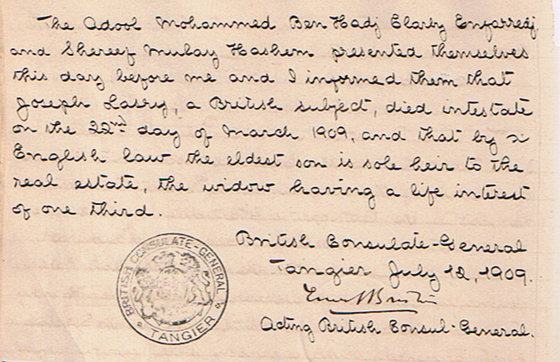 The Adool Mohammed Ben Hadj Elarby Enfarredj
and Shereef Mulay Hashem presented themselves
this day before me and I informed them that
Joseph Lasry, a British subject, died intestate
on the 22nd day of March 1909, and that by
English law the eldest son is sole heir to the
real estate, the widow having a life interest
of one third.
British Consulate-General
Tangier July 12, 1909.
Acting British Consul-General.
BRITISH CONSULATE-GENERAL
TANGIER